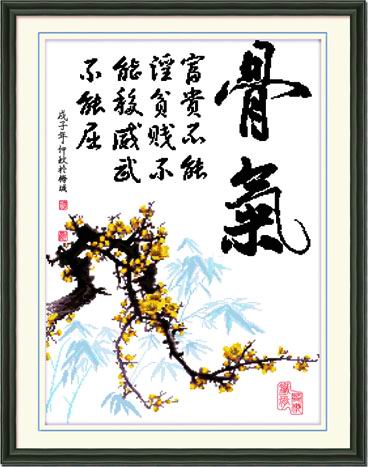 骨氣
富貴不能
淫貧賤不
能移威武
不能屈
戊子年仲秋於梅城